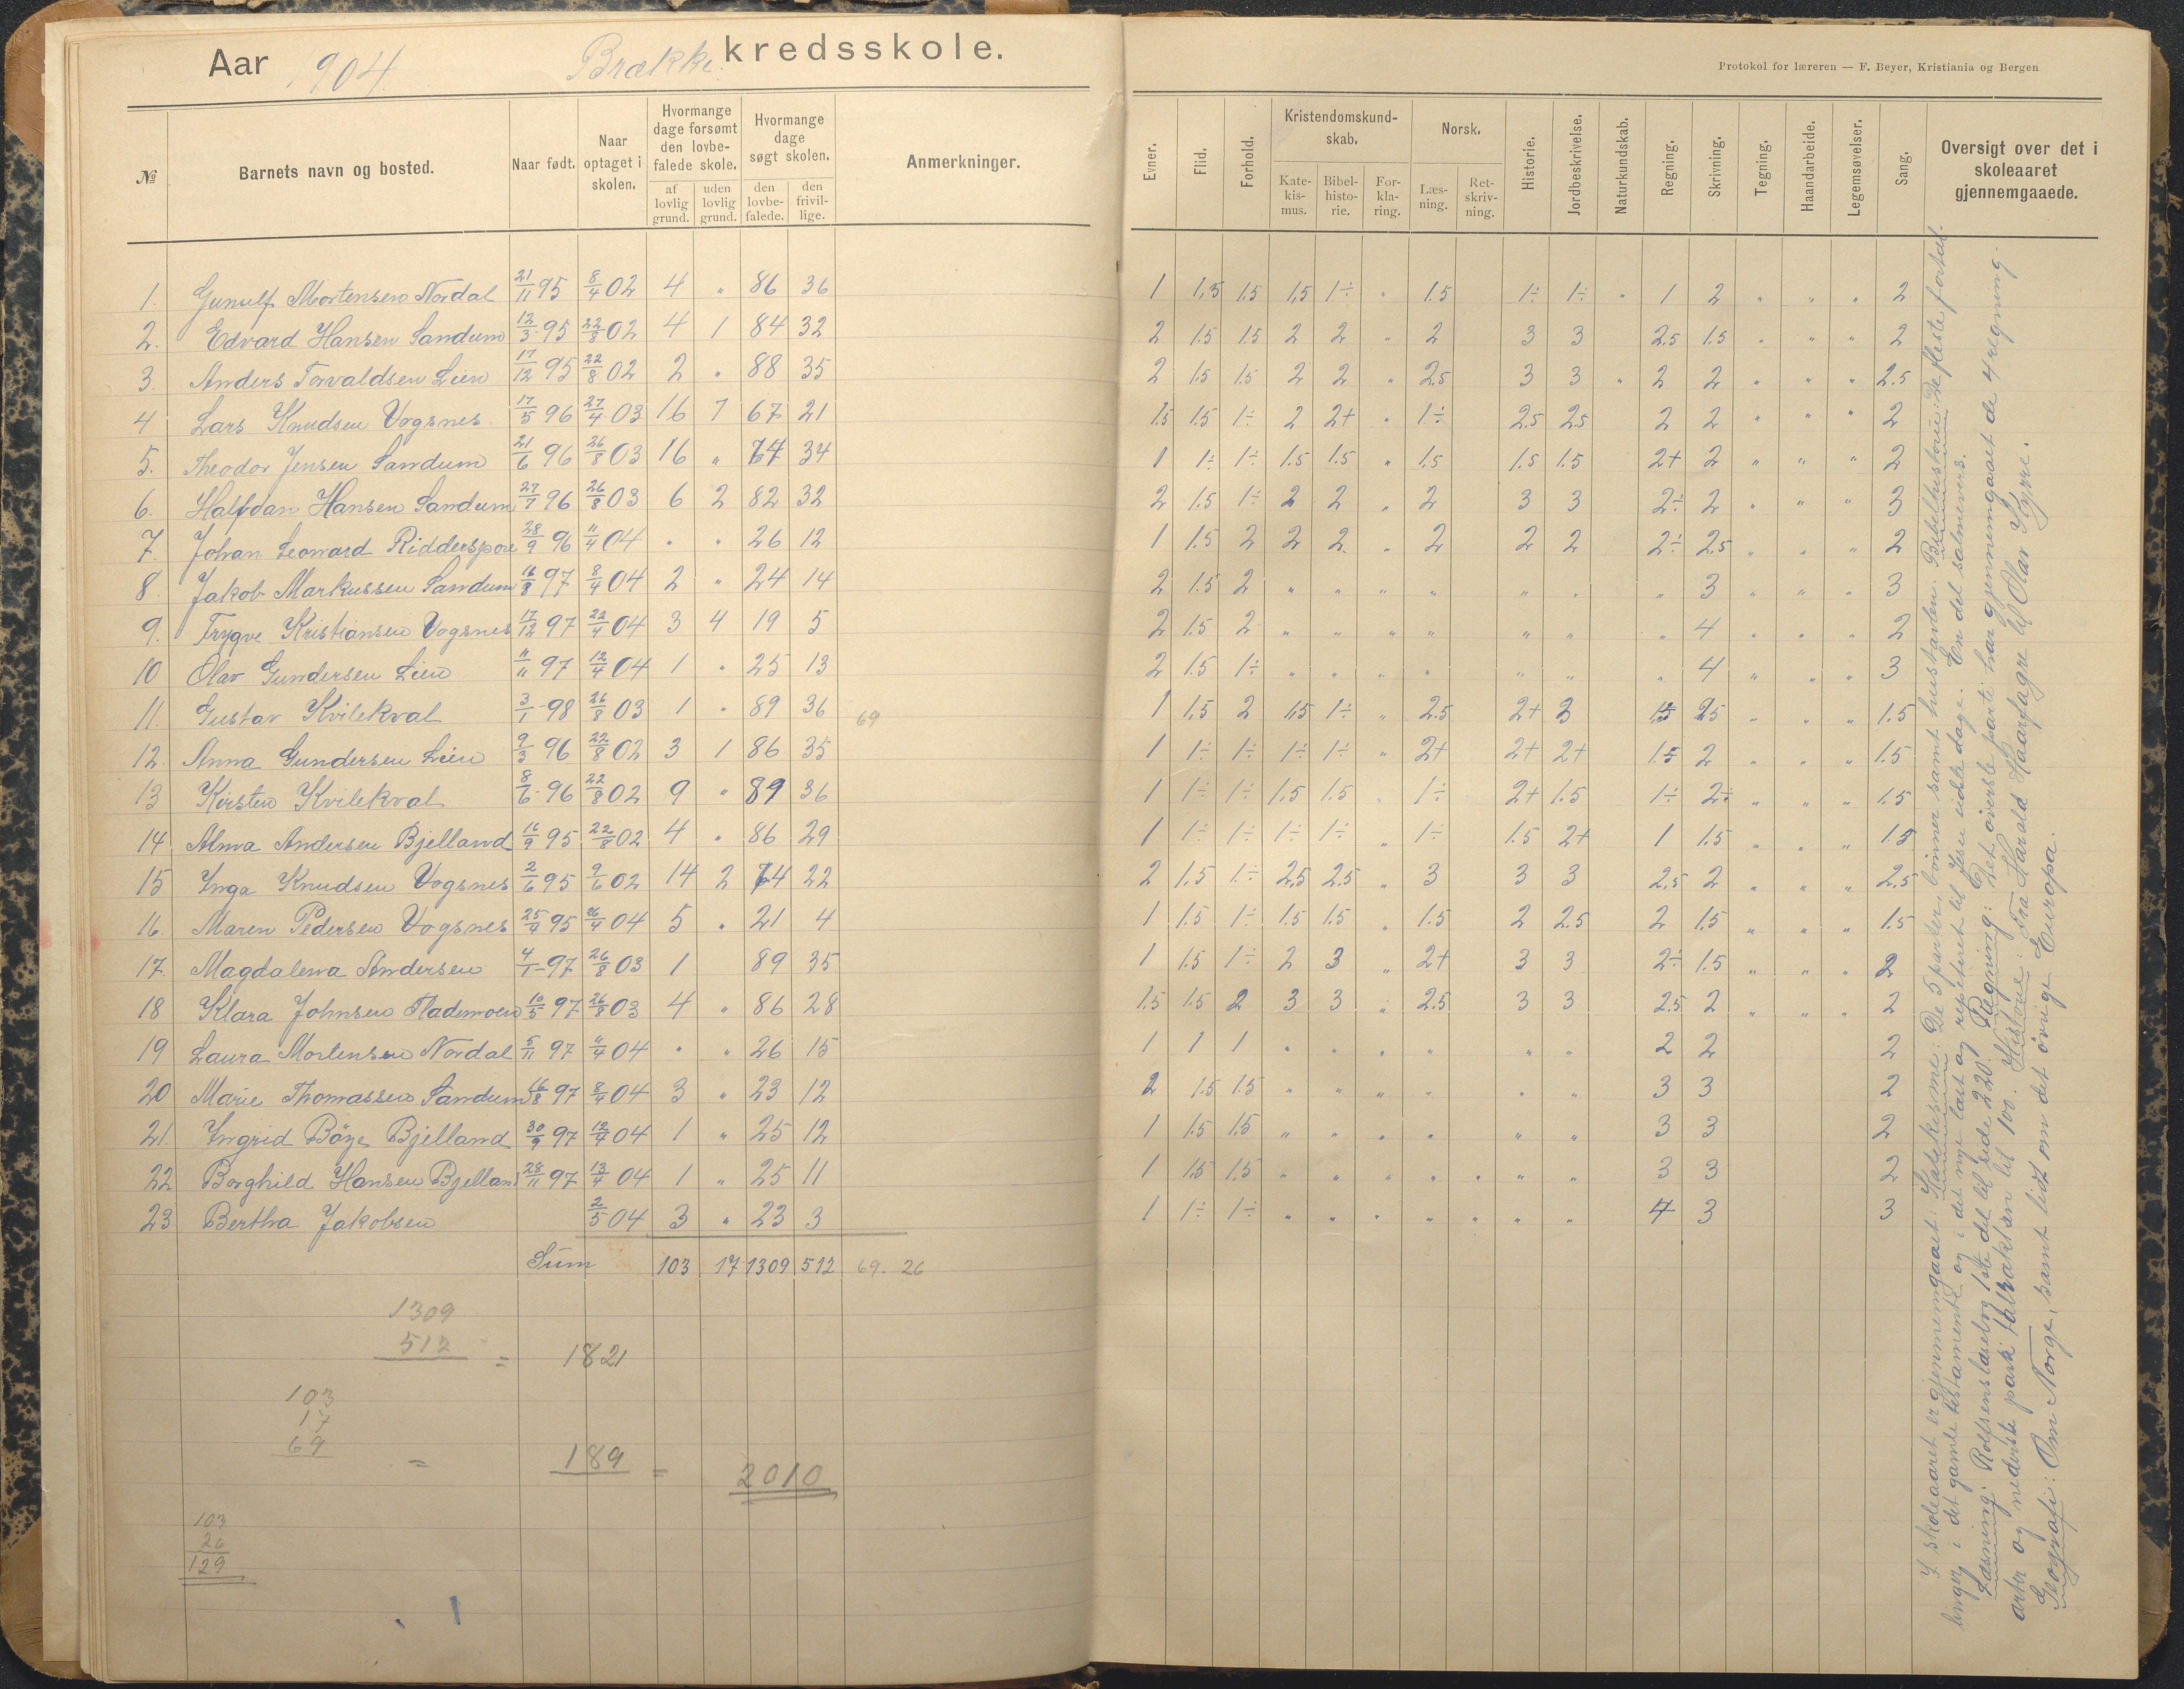 Aar 1904. Brække kredsskole.
№ Barnets navn og bosted. Naar født. Naar optaget i skolen. Hvormange dage forsømt den lovbefalede skole. af lovlig grund. uden lovlig grund. Hvormange dage søgt skolen. den lovbefalede. den frivillige. Anmerkninger.
1. Gunulf Mortensen Nordal 21/11 95 8/4 02 4 " 86 36
2. Edvard Hansen Sandum 12/3 95 22/8 02 4 1 84 32
3. Anders Torvaldsen Lien 17/12 95 22/8 02 2 " 88 35
4 Lars Knudsen Vogsnes 17/5 96 27/4 03 16 7 67 21
5. Theodor Jensen Sandum 21/6 96 26/8 03 16 " 74 34
6. Halfdan Hansen Sandum 27/7 96 26/8 03 6 2 82 32
7. Johan Leonard Ridderspore 28/9 96 11/4 04 " " 26 12
8. Jakob Markussen Sandum 16/8 97 8/4 04 2 " 24 14
9. Trygve Kristiansen Vogsnes 17/12 97 22/4 04 3 4 19 5
10 Olav Gundersen Lien 11/11 97 12/4 04 1 " 25 13
11. Gustav Kvilekval 3/1 98 26/8 03 1 " 89 36 69
12. Anna Gundersen Lien 9/3 96 22/8 02 3 1 86 35
13 Kirsten Kvilekval 8/6 96 22/8 02 9 " 89 36
14 Alma Andersen Bjelland 16/9 95 22/8 02 4 " 86 29
15 Inga Knudsen Vogsnes 2/6 95 9/6 02 14 2 74 22
16. Maren Pedersen Vogsnes 25/4 95 26/4 04 5 " 21 4
17. Magdalena Andersen 4/1 97 26/8 03 1 89 35
18 Klara Johnsen Flademoen 10/5 97 26/8 03 4 " 86 28
19 Laura Mortensen Nordal 5/11 97 11/4 04 " " 26 15
20 Marie Thomassen Sandum 16/8 97 8/4 04 3 " 23 12
21 Ingrid Böye Bjelland 30/9 97 12/4 04 1 " 25 12
22 Borghild Hansen Bjelland 28/11 97 13/4 04 1 " 25 11
23 Bertha Jakobsen 2/5 04 3 " 23 3
Sum 103 17 1309 512 69. 26
1309
512 = 1821
103
17
69 = 189 = 2010
103
26
129
Protokol for læreren — F. Beyer, Kristiania og Bergen
Evner. Flid. Forhold. Kristendomskundskab. Katekismus. Bibelhistorie. Forklaring. Norsk. Læsning. Retskrivning. Historie. Jordbeskrivelse. Naturkundskab. Regning. Skrivning. Tegning. Haandarbeide. Legemsøvelser. Sang. Oversigt over det i skoleaaret gjennemgaaede.
1 1,5 1.5 1,5 1÷ " 1.5 1÷ 1÷ " 1 2 " " " 2
2 1.5 1.5 2 2 " 2 3 3 2.5 1.5 " " " 2
2 1.5 1.5 2 2 " 2.5 3 3 " 2 2 " " " 2.5
1.5 1.5 1÷ 2 2+ " 1÷ 2.5 2.5 2 2 " " " 2
1 1÷ 1÷ 1.5 1.5 " 1.5 1.5 1.5 2+ 2 " " " 2
2 1.5 1÷ 2 2 " 2 3 3 2÷ 2 " " " 3
1 1.5 2 2 2 " 2 2 2 2÷ 2.5 " " " 2
2 1.5 2 " " " " " " " 3 " " " 3
2 1.5 2 " " " " " " " 4 " " " 2
2 1.5 1÷ " " " " " " " 4 " " " 3
1 1,5 2 1,5 1÷ " 2.5 2+ 3 1.5 2.5 " " " 1.5
1 1÷ 1÷ 1÷ 1÷ " 2+ 2+ 2+ 1.5 2 " " " 1.5
1 1÷ 1÷ 1.5 1.5 " 1÷ 2+ 1.5 1÷ 2÷ " " " 1.5
1 1÷ 1÷ 1÷ 1÷ " 1÷ 1.5 2+ 1 1.5 " " " 1.5
2 1,5 1÷ 2,5 2.5 " 3 3 3 2,5 2 " " " 2,5
1 1.5 1÷ 1.5 1.5 " 1.5 2 2.5 2 1.5 " " " 1.5
1 1.5 1÷ 2 3 " 2+ 3 3 2÷ 1.5 " " " 2
1.5 1.5 2 3 3 " 2.5 3 3 2.5 2 " " " 2
1 1 1 " " " " " " 2 2 2
2 1.5 1.5 " " " " " " 3 3 2
1 1.5 1.5 " " " " " " 3 3 2
1 1.5 1.5 " " " " " " " 3 3 2
1 1÷ 1÷ " " " " " " " 4 3 3
I skoleaaret er gjennemgaaet: Katekisme: De 5 parter, bønner samt hustavlen. Bibelhistorie: De fleste fortæl-
linger i det gamle testamente og i det nye læst og repeteret til Jesu sidste dage. En del salmevers.
Læsning: Rolfsens læsebog 1ste del til side 220. Regning: Det øverste parti har gjennemgaaet de 4 regning-
arter og nederste parti talrækken til 100. Historie: Fra Harald Haarfagre til Olav Kyrre.
Geografi: Om Norge, samt lidt om det øvrige Europa.